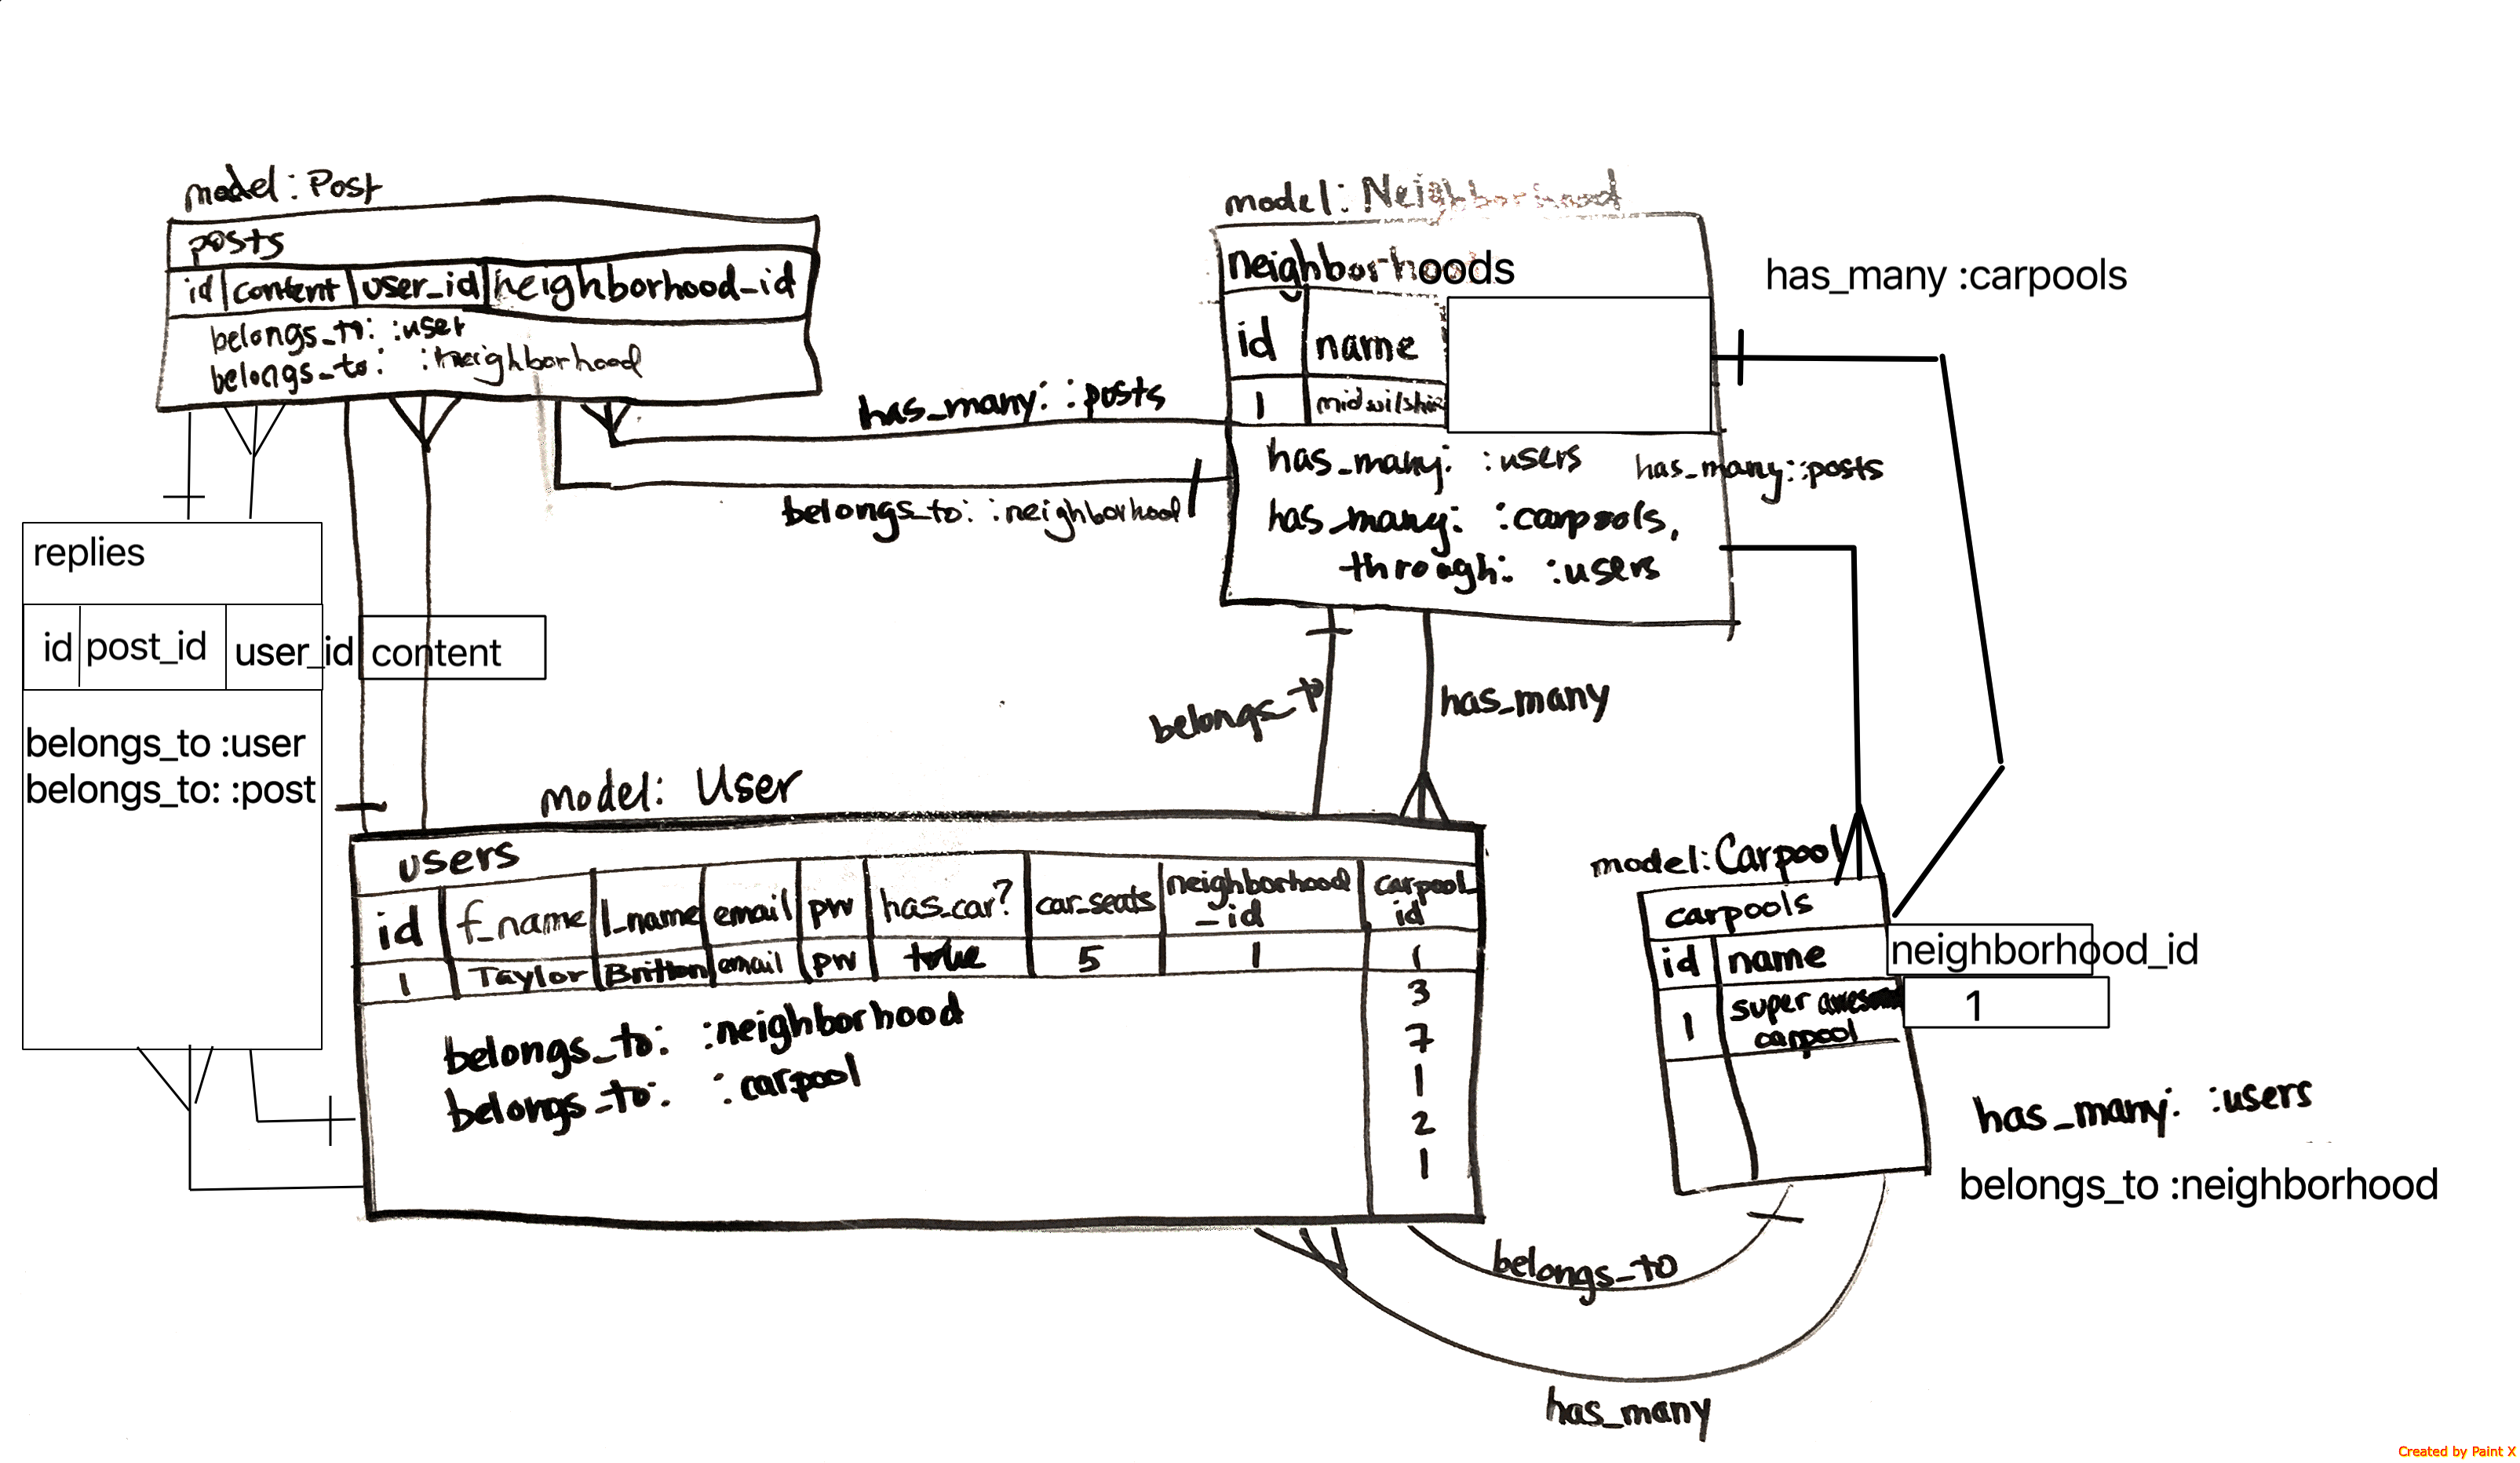 model: Post
posts
id content user_id neighborhood_id
belongs_to: :user
belongs_to: :neighborhood
model: Neighborhood
neighborhoods
id name
1 midwilshire
has_many: :users has_many: :posts
has_many: :carpools,
through: :users
has_many :carpools
has_many: :posts
belongs_to: :neighborhood
replies
id post_id user_id content
belongs_to :user
belongs_to: :post
belongs_to
has_many
model: User
users
id f_name l_name email pw has_car? car_seats neighborhood_id carpool_id
1 Taylor Britton email pw true 5 1 1
3
7
1
2
1
belongs_to: :neighborhood
belongs_to: :carpool
model: Carpool
carpools
id name neighborhood_id
1 super awesome 1
carpool
has_many: :users
belongs_to :neighborhood
belongs_to
has_many
Created by Paint X